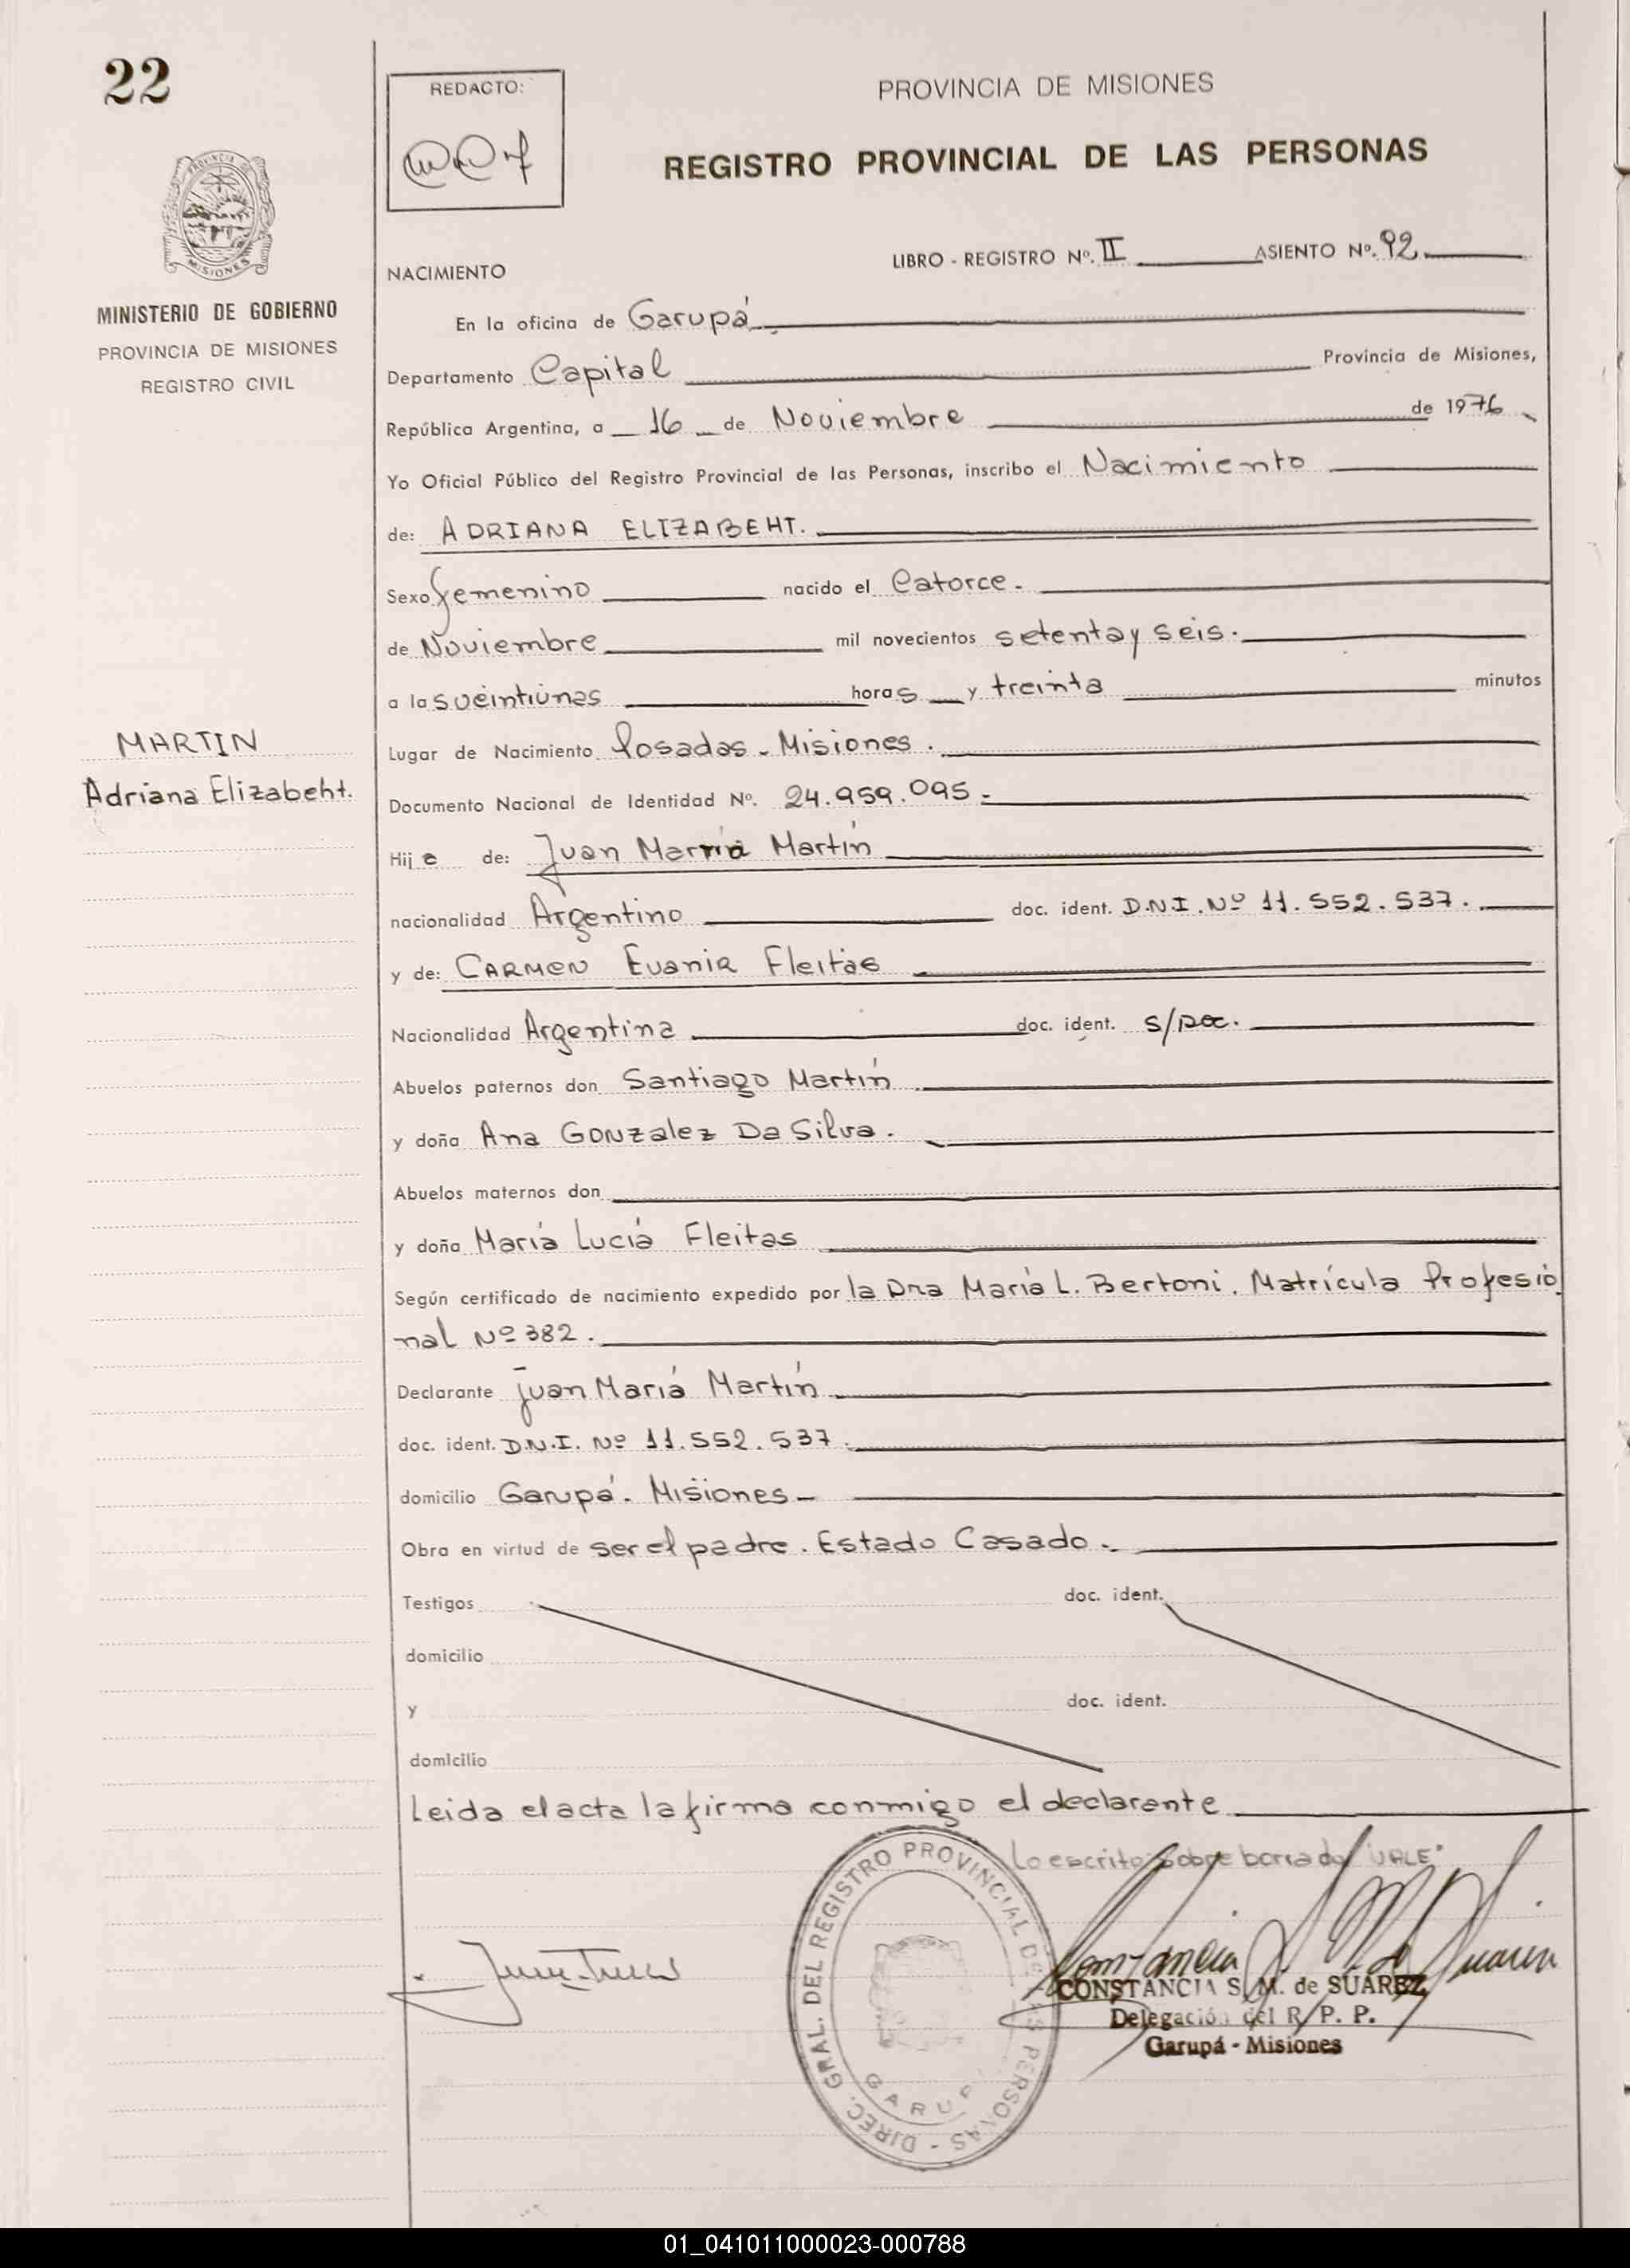 22
REDACTO:
PROVINCIA DE MISIONES
REGISTRO PROVINCIAL DE LAS PERSONAS
PROVINCIA
MISIONES
MINISTERIO DE GOBIERNO
PROVINCIA DE MISIONES
REGISTRO CIVIL
LIBRO - REGISTRO Nº. II ASIENTO Nº. 92
NACIMIENTO
En la oficina de Garupá
Departamento Capital Provincia de Misiones,
República Argentina, a 16 de Noviembre de 1976
Yo Oficial Público del Registro Provincial de las Personas, inscribo el Nacimiento
de: ADRIANA ELIZABEHT.
Sexo femenino nacido el Catorce.
de Noviembre mil novecientos setenta y seis.
a las veintiunas horas y treinta minutos
MARTIN
Adriana Elizabeht.
Lugar de Nacimiento Posadas - Misiones.
Documento Nacional de Identidad Nº. 24.959.095-
Hija de: Juan María Martín
nacionalidad Argentino doc. ident. D.N.I. Nº 11.552.537.
y de: CARMEN Evania Fleitas
Nacionalidad Argentina doc. ident. s/Doc.
Abuelos paternos don Santiago Martín
y doña Ana Gonzalez Da Silva.
Abuelos maternos don
y doña María Lucía Fleitas
Según certificado de nacimiento expedido por la Dra María L. Bertoni. Matrícula Profesio
nal Nº 382.
Declarante Juan María Martín
doc. ident. D.N.I. Nº 11.552.537.
domicilio Garupá. Misiones-
Obra en virtud de ser el padre. Estado Casado.
Testigos doc. ident.
domicilio
y doc. ident.
domicilio
Leida el acta la firma conmigo el declarante
Lo escrito sobre borrado "VALE"
DIREC. GRAL. DEL REGISTRO PROVINCIAL DE LAS PERSONAS -
GARUPÁ
CONSTANCIA S. M. de SUAREZ
Delegación del R. P. P.
Garupá - Misiones
01_041011000023-000788